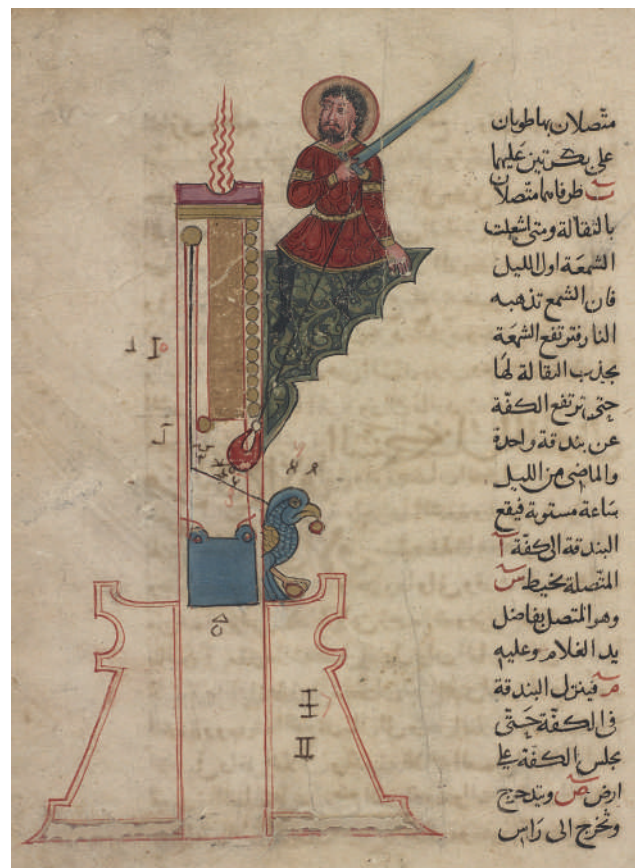 متصلان بها طوبان
على بكرتين عليهما
طرفاهما متصلان
بالثقالة ومتى اشعلت
الشمعة اول الليل
فان الشمع تذهبه
النار فترتفع الشمعة
بجذب الثقالة لها
حتى ترتفع الكفة
عن بندقة واحدة
والماضى من الليل
ساعة مستوية فيقع
البندقة الى كفة آ
المتصلة بخيط س
وهو المتصل بفاضل
يد الغلام وعليه
فينزل البندقة
فى الكفة حتى
يجلس الكفة على
ارض ص ويتدحرج
وتخرج الى راس